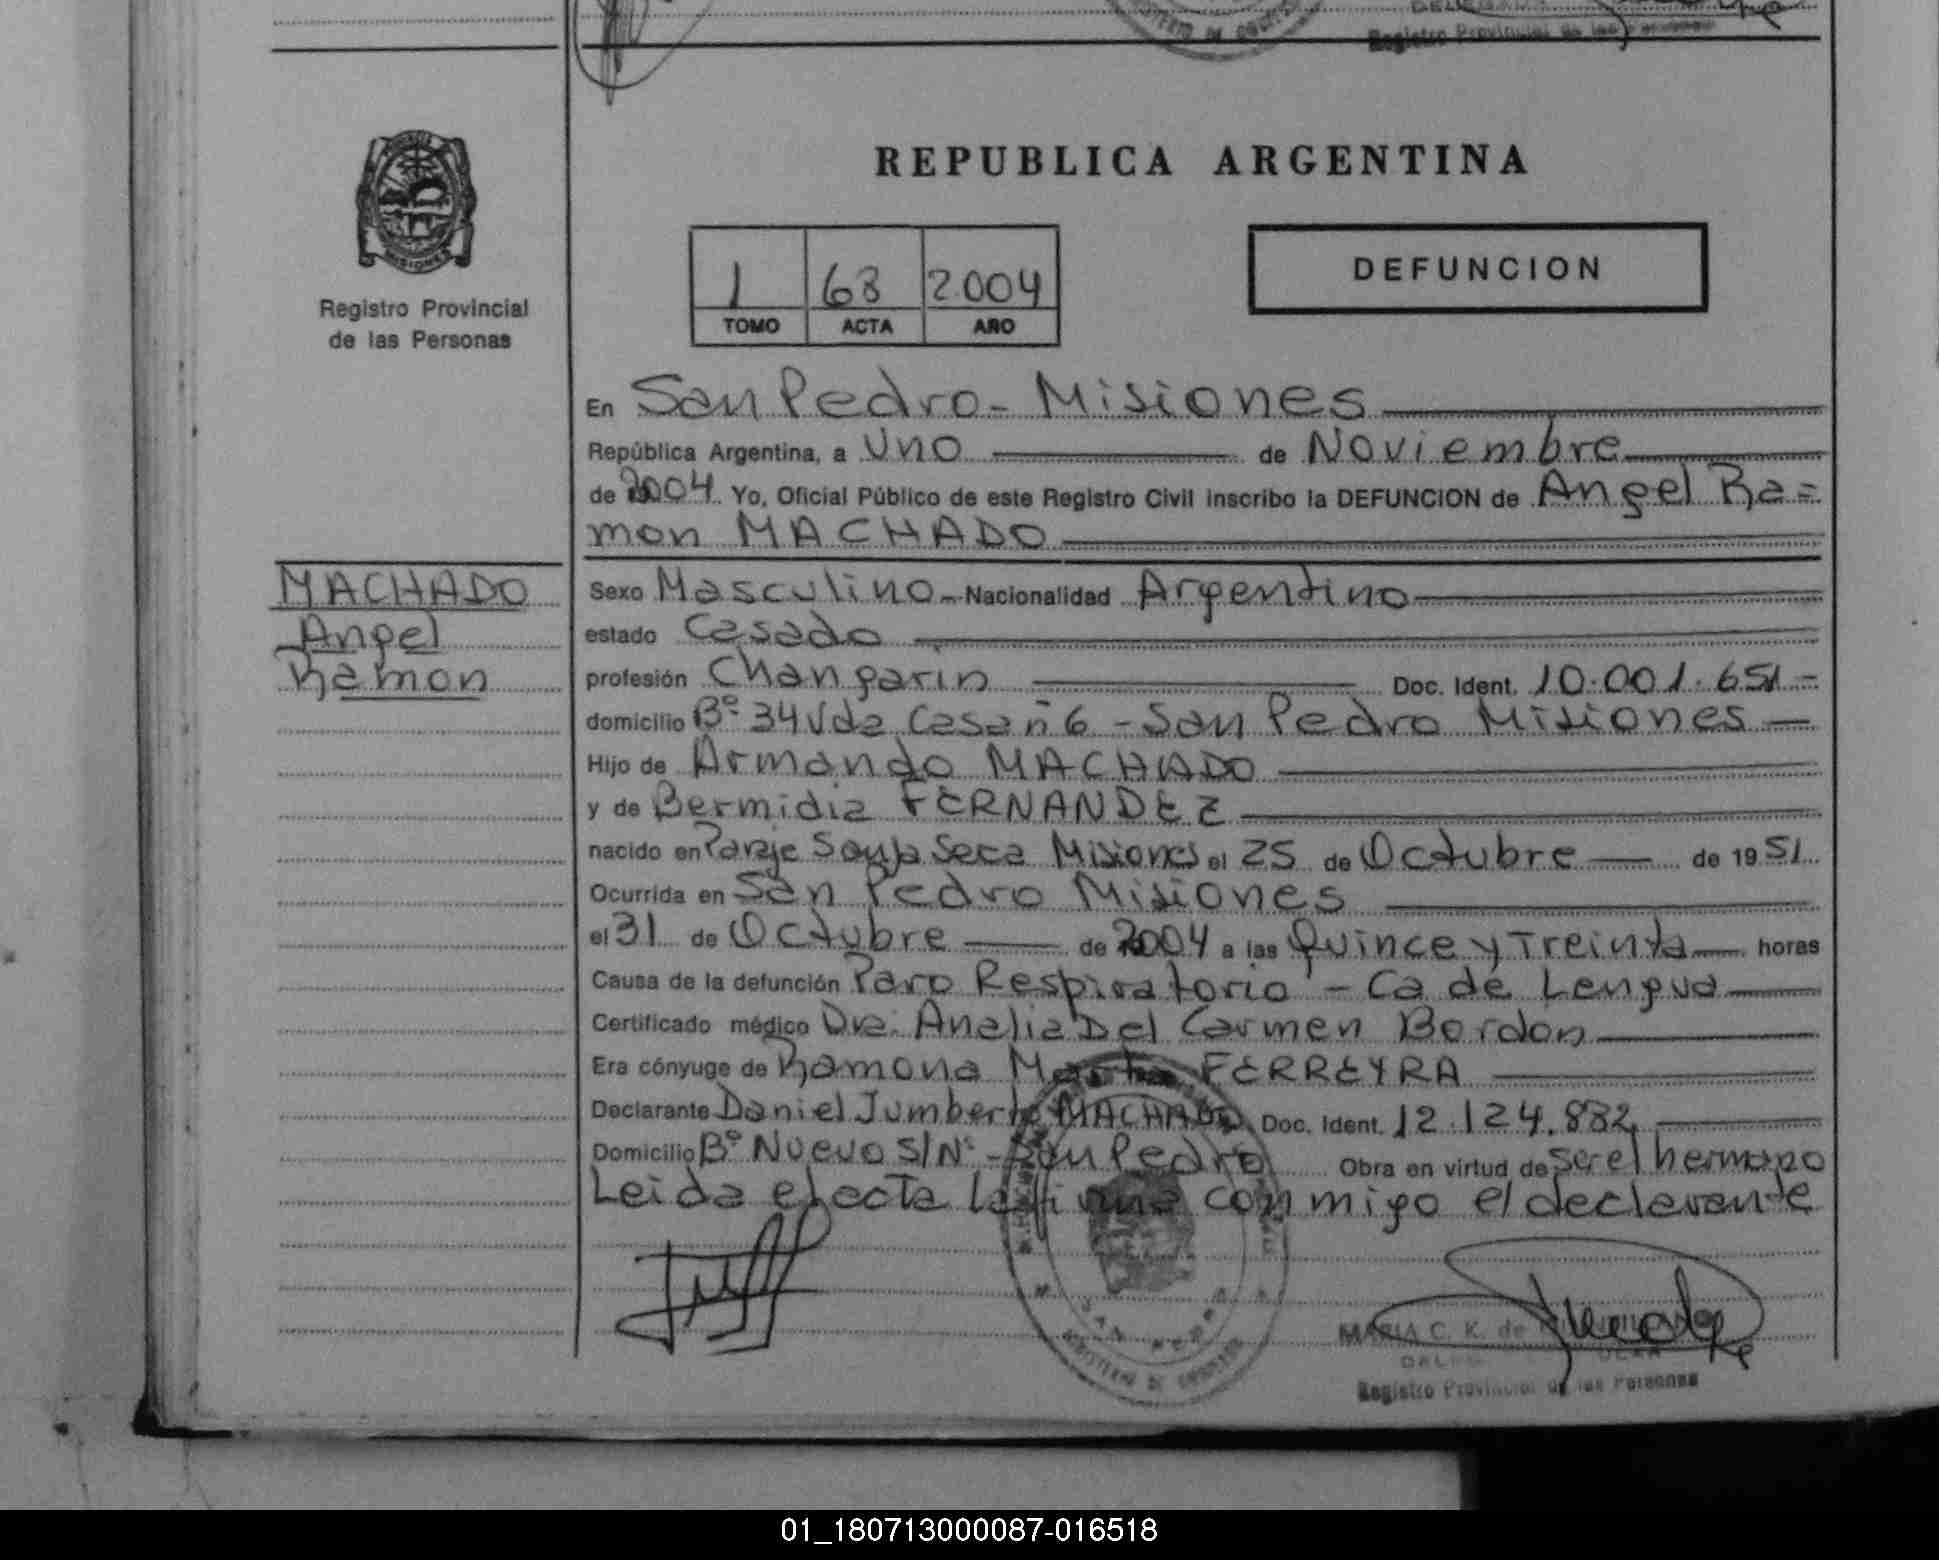 REPUBLICA ARGENTINA
MISIONES
Registro Provincial
de las Personas
1 68 2004
TOMO ACTA AÑO
DEFUNCION
En San Pedro - Misiones
República Argentina, a Uno de Noviembre
de 2004 Yo, Oficial Público de este Registro Civil inscribo la DEFUNCION de Angel Ra=
mon MACHADO
MACHADO
Angel
Ramon
Sexo Masculino - Nacionalidad Argentino
estado Casado
profesión Changarin Doc. Ident. 10.001.651 -
domicilio Bº 34 Vda Casa ñ 6 - San Pedro Misiones
Hijo de Armando MACHADO
y de Bermidia FERNANDEZ
nacido en Paraje Seca Misiones el 25 de Octubre de 1951
Ocurrida en San Pedro Misiones
el 31 de Octubre de 2004 a las Quince y Treinta horas
Causa de la defunción Paro Respiratorio - Ca de Lengua
Certificado médico Dra. Analia Del Carmen Bordon
Era cónyuge de Ramona FERREYRA
Declarante Daniel Jumberto MACHADO Doc. Ident. 12.124.882
Domicilio Bº Nuevo S/Nº - San Pedro Obra en virtud de Ser el hermano
Leida esta la firma conmigo el declarante
SAN PEDRO
MARIA C. K. de
Registro Provincial de las Personas
01_180713000087-016518